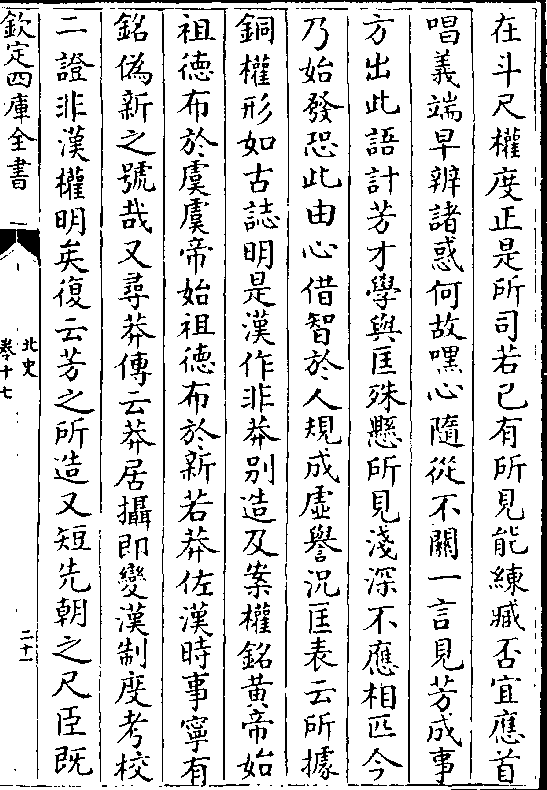 在斗尺權度正是所司若已有所見能練臧否宜應首
唱義端早辨諸惑何故嘿心隨從不關一言見芳成事
方出此語計芳才學與匡殊懸所見淺深不應相匹今
乃始發恐此由心借智於人規成虛譽況匡表云所據
銅權形如古誌明是漢作非莽别造及案權銘黄帝始
祖徳布於虞虞帝始祖徳布於新若莽佐漢時事寧有
銘偽新之號哉又尋莽傳云莽居攝即變漢制度考校
二證非漢權明矣復云芳之所造又短先朝之尺臣既
欽定四庫全書
北史
卷十七
二十一